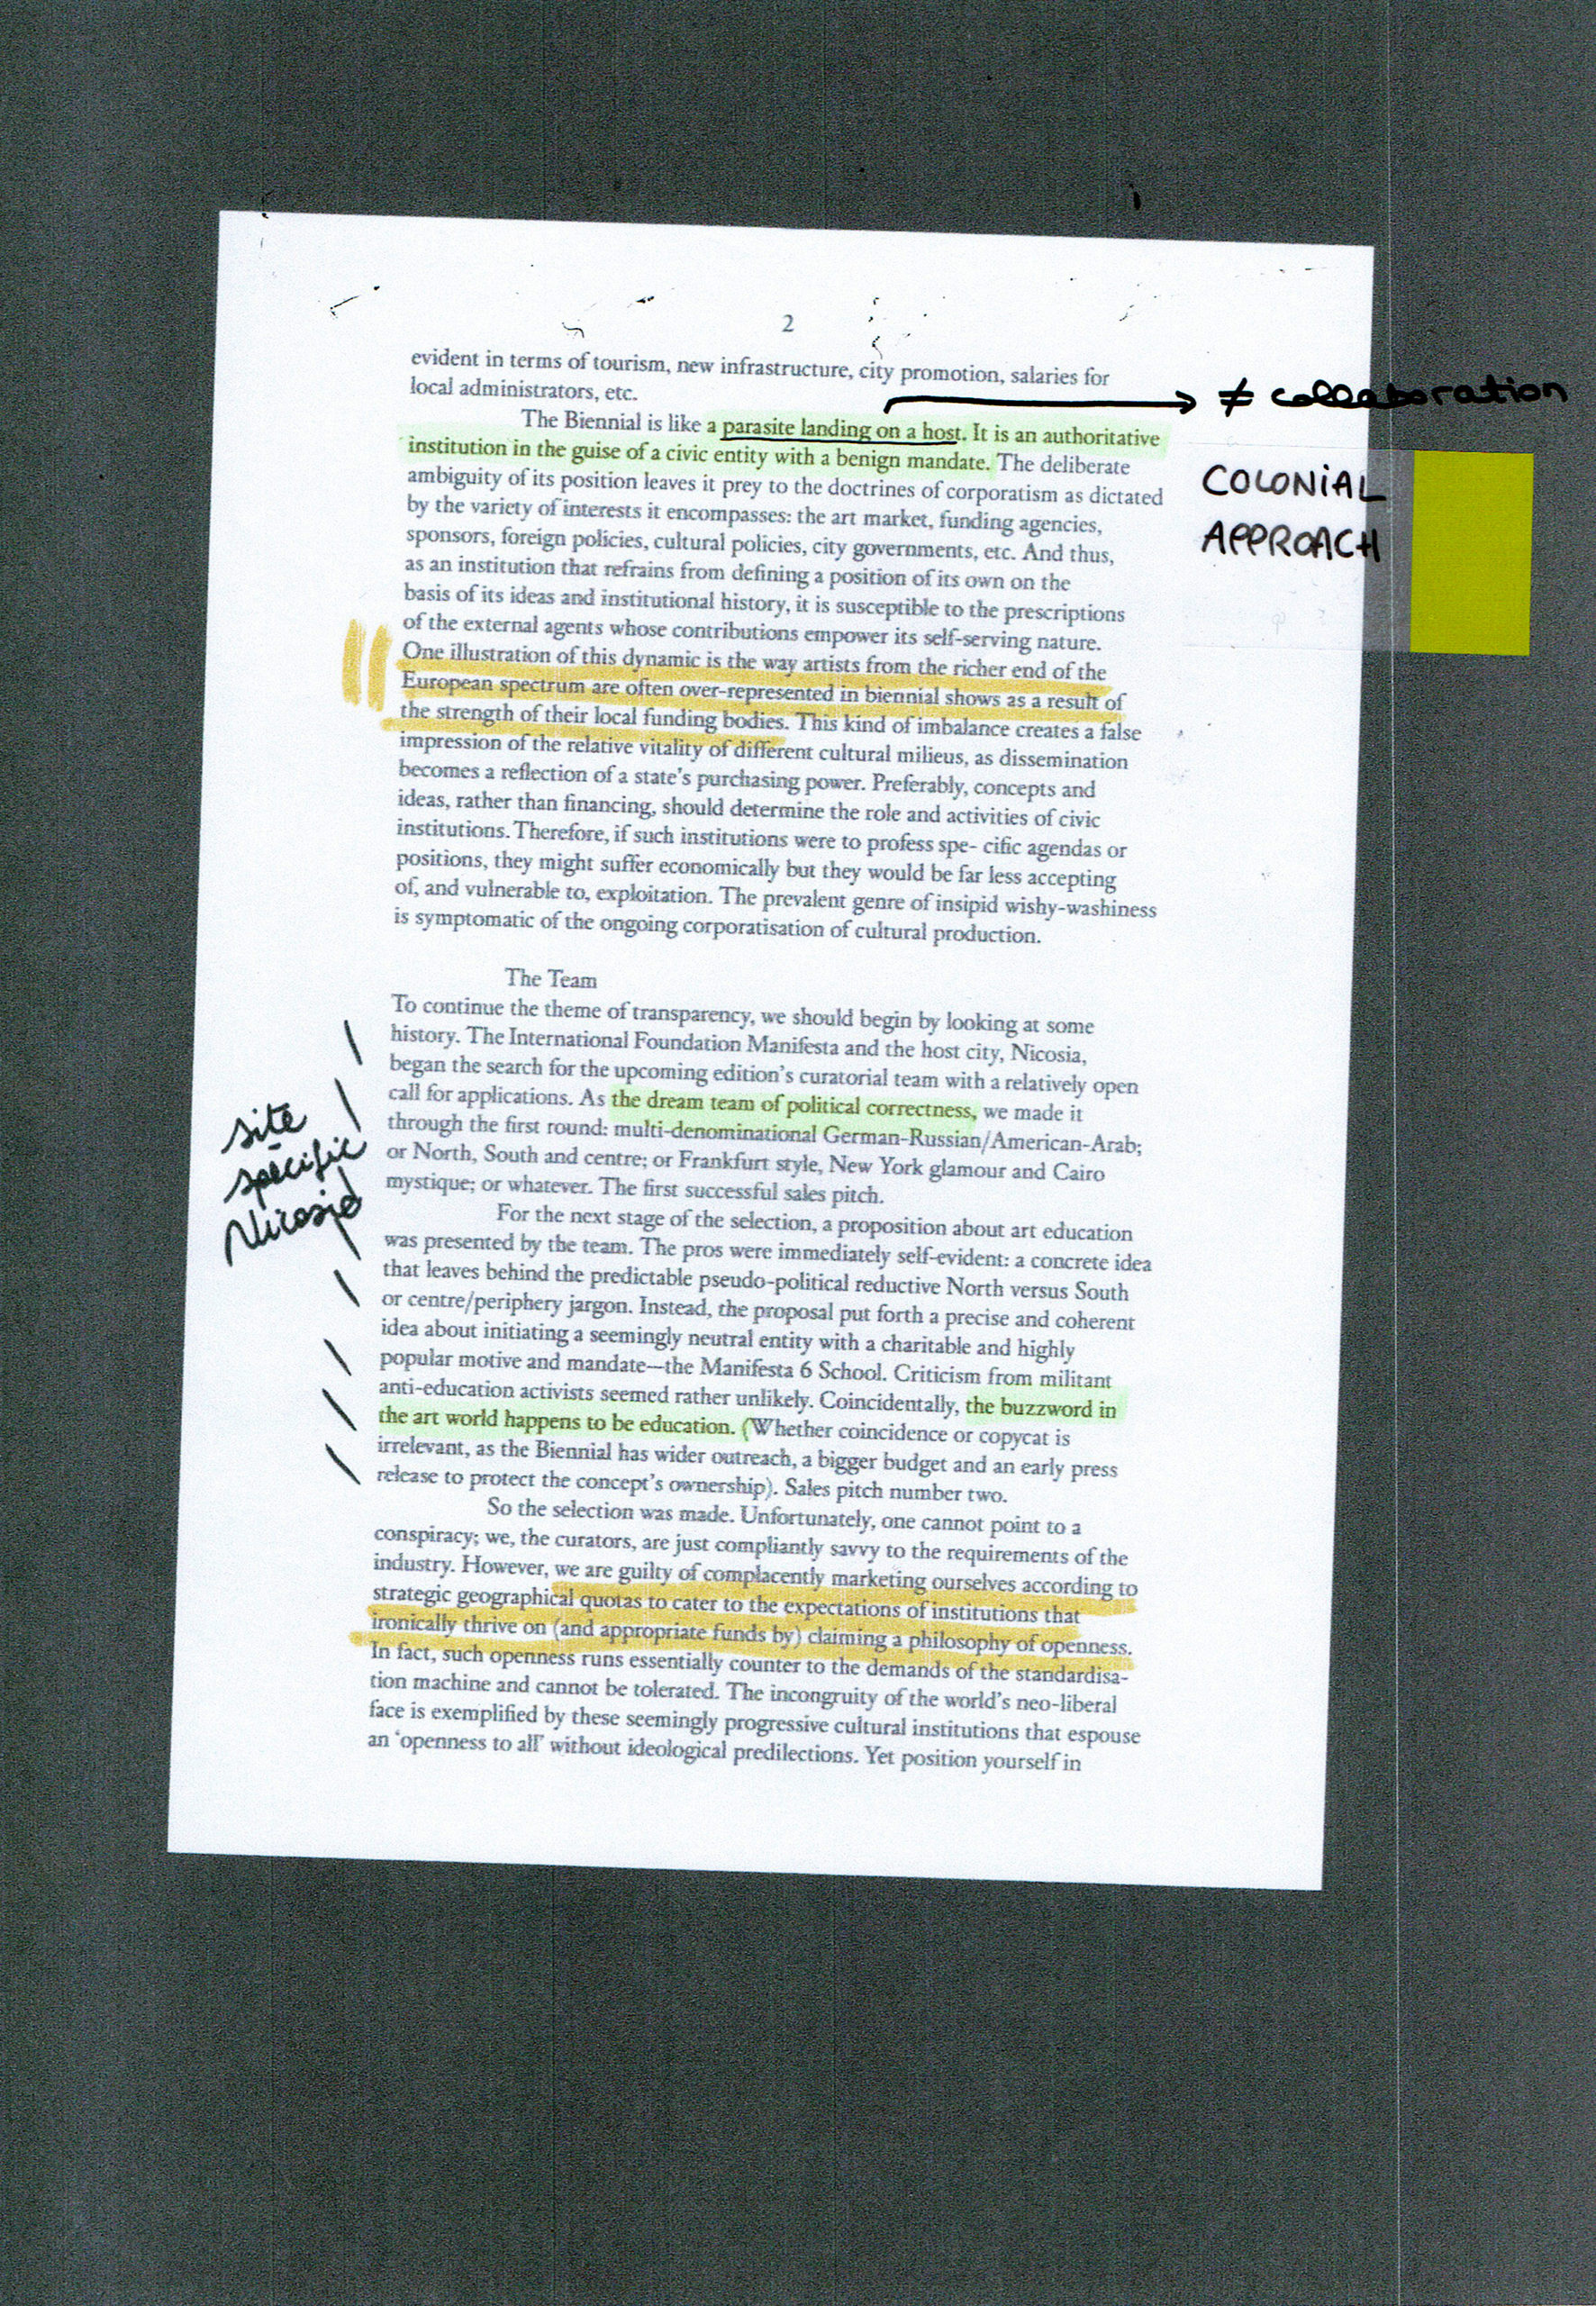 2
evident in terms of tourism, new infrastructure, city promotion, salaries for
local administrators, etc.
≠ collaboration
The Biennial is like a parasite landing on a host. It is an authoritative
institution in the guise of a civic entity with a benign mandate. The deliberate
COLONIAL
APPROACH
ambiguity of its position leaves it prey to the doctrines of corporatism as dictated
by the variety of interests it encompasses: the art market, funding agencies,
sponsors, foreign policies, cultural policies, city governments, etc. And thus,
as an institution that refrains from defining a position of its own on the
basis of its ideas and institutional history, it is susceptible to the prescriptions
of the external agents whose contributions empower its self-serving nature.
One illustration of this dynamic is the way artists from the richer end of the
European spectrum are often over-represented in biennial shows as a result of
the strength of their local funding bodies. This kind of imbalance creates a false
impression of the relative vitality of different cultural milieus, as dissemination
becomes a reflection of a state's purchasing power. Preferably, concepts and
ideas, rather than financing, should determine the role and activities of civic
institutions. Therefore, if such institutions were to profess spe- cific agendas or
positions, they might suffer economically but they would be far less accepting
of, and vulnerable to, exploitation. The prevalent genre of insipid wishy-washiness
is symptomatic of the ongoing corporatisation of cultural production.
The Team
To continue the theme of transparency, we should begin by looking at some
history. The International Foundation Manifesta and the host city, Nicosia,
began the search for the upcoming edition's curatorial team with a relatively open
call for applications. As the dream team of political correctness, we made it
through the first round: multi-denominational German-Russian/American-Arab;
or North, South and centre; or Frankfurt style, New York glamour and Cairo
mystique; or whatever. The first successful sales pitch.
site
specific
Nicosia
For the next stage of the selection, a proposition about art education
was presented by the team. The pros were immediately self-evident: a concrete idea
that leaves behind the predictable pseudo-political reductive North versus South
or centre/periphery jargon. Instead, the proposal put forth a precise and coherent
idea about initiating a seemingly neutral entity with a charitable and highly
popular motive and mandate—the Manifesta 6 School. Criticism from militant
anti-education activists seemed rather unlikely. Coincidentally, the buzzword in
the art world happens to be education. (Whether coincidence or copycat is
irrelevant, as the Biennial has wider outreach, a bigger budget and an early press
release to protect the concept's ownership). Sales pitch number two.
So the selection was made. Unfortunately, one cannot point to a
conspiracy; we, the curators, are just compliantly savvy to the requirements of the
industry. However, we are guilty of complacently marketing ourselves according to
strategic geographical quotas to cater to the expectations of institutions that
ironically thrive on (and appropriate funds by) claiming a philosophy of openness.
In fact, such openness runs essentially counter to the demands of the standardisa-
tion machine and cannot be tolerated. The incongruity of the world's neo-liberal
face is exemplified by these seemingly progressive cultural institutions that espouse
an 'openness to all' without ideological predilections. Yet position yourself in